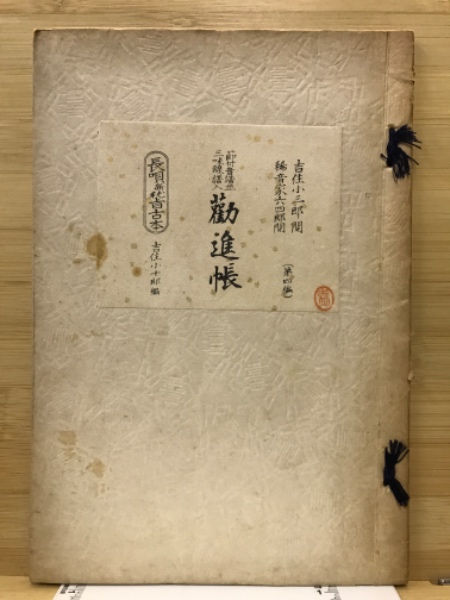 吉住小三郎閲
稀音家六四郎閲
(第四編)
節付音譜並
三味線譜入
勸進帳
長唄新稽古本
吉住小十郎編